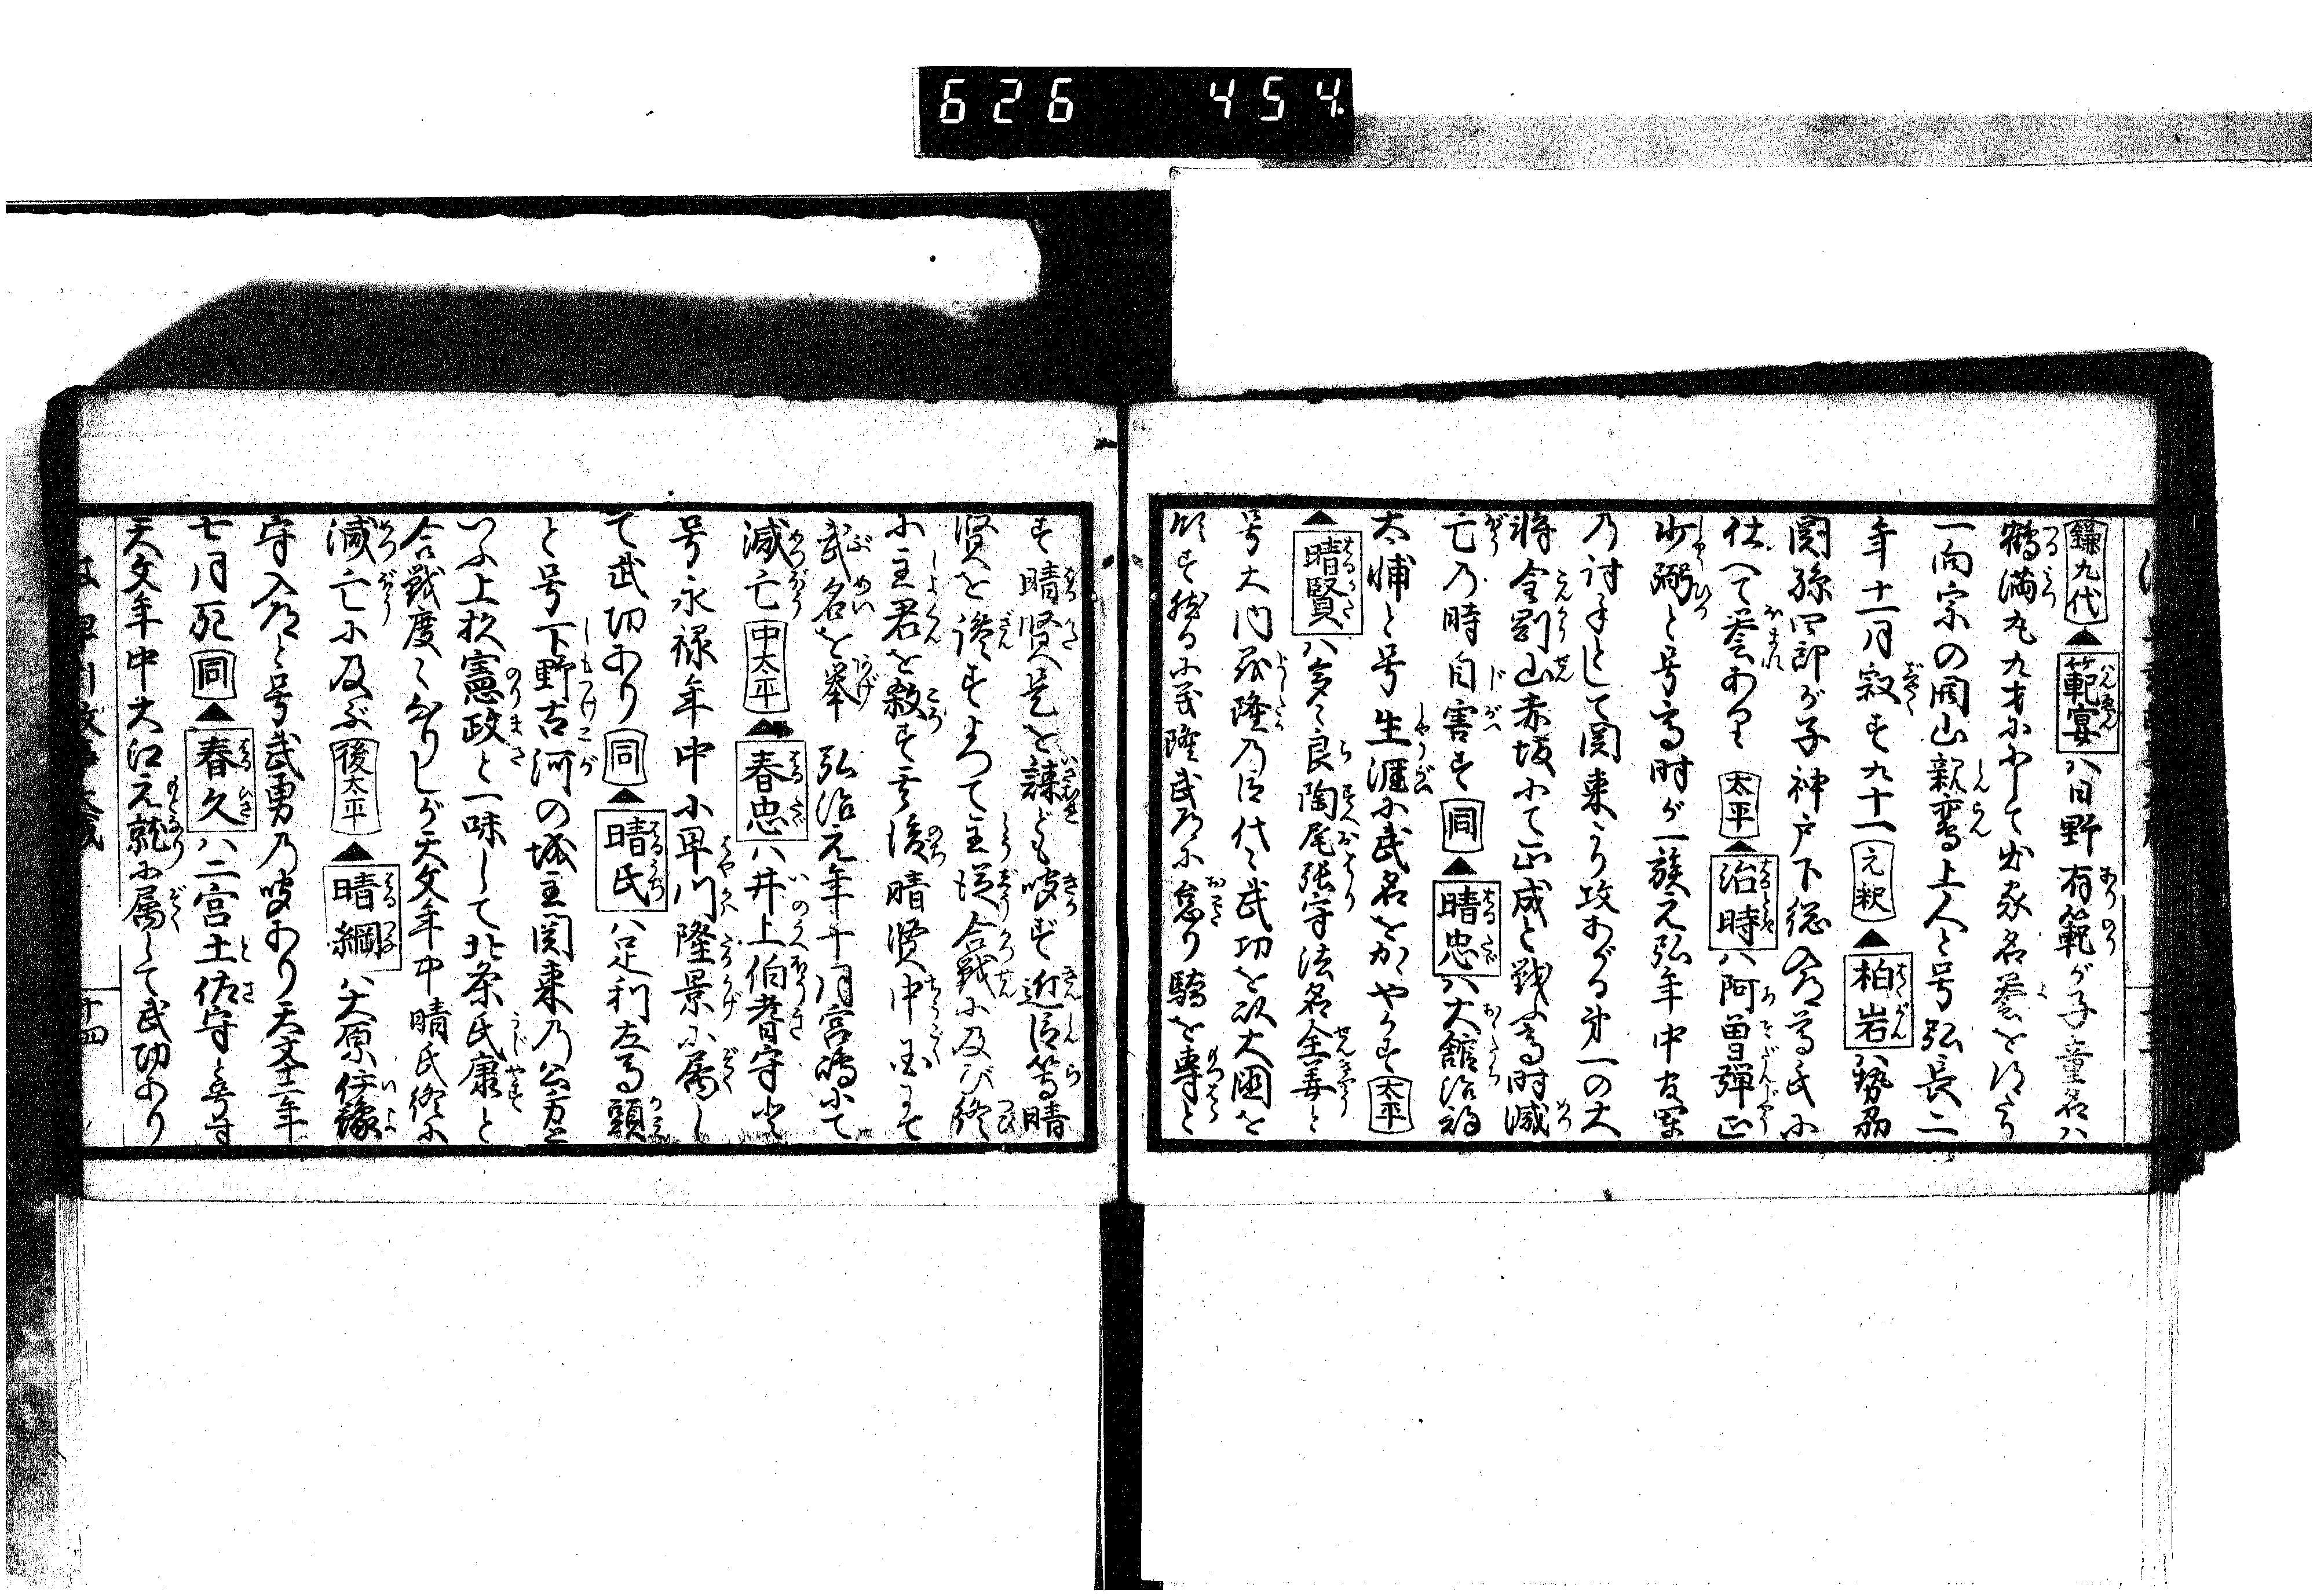 626 454
鎌九代▲範宴ハ日野有範が子童名ハ
鶴満丸九才にして出家名誉を得たり
一向宗の開山親鸞上人と号弘長二
年十一月寂す九十一元釈▲柏岩ハ勢州
関孫四郎が子神戸下総入道尊氏に
仕へて誉あり太平▲治時ハ阿曽弾正
少弼と号高時が一族元弘年中官軍
乃討手として関東より攻あがる第一の大
将金剛山赤坂にて正成と戦ふ高時滅
亡乃時自害す同▲晴忠ハ大館治部
太輔と号生涯に武名をかゝやかす太平
▲晴賢ハ多々良陶尾張守法名全姜と
号大内義隆乃臣代々武功を以大国を
領す然るに義隆武道に怠り驕を専と
す晴賢是を諫ども聴ず近臣等晴
賢を讒すよつて主従合戦に及び終
に主君を殺す其後晴賢中国にて
武名を挙 弘治元年十月宮嶋にて
滅亡中太平▲春忠ハ井上伯耆守と
号永禄年中小早川隆景に属し
て武功あり同▲晴氏ハ足利左馬頭
と号下野古河の城主関東乃公方と
いふ上杦憲政と一味して北条氏康と
合戦度々なりしが天文年中晴氏終に
滅亡に及ぶ後太平▲晴綱ハ大原伊豫
守入道と号武勇乃聞あり天文十一年
七月死同▲春久ハ二宮土佐守と号す
天文年中大江元就に属して武功あり
十四